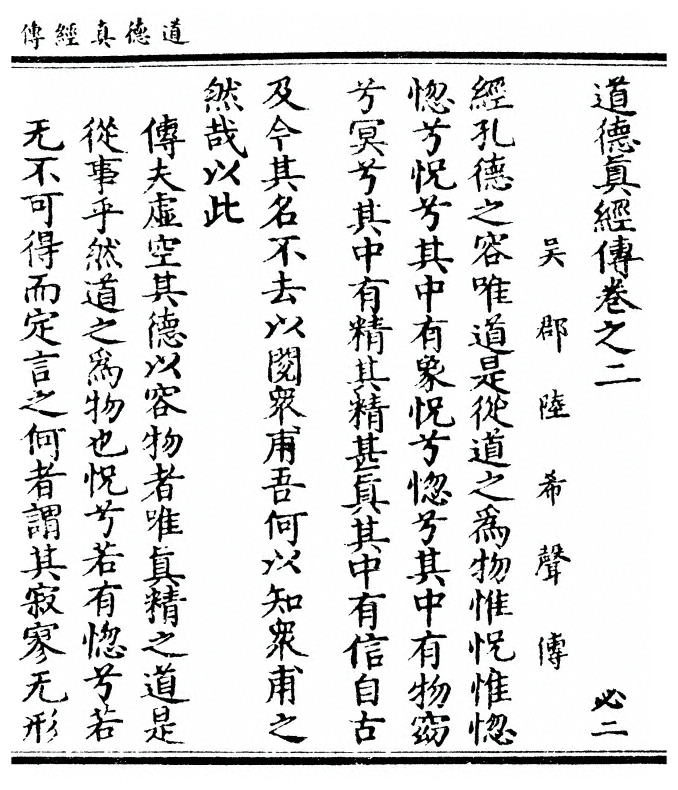 道德真經傳
道德眞經傳卷之二 必二
吴郡陸希聲傳
經孔德之容唯道是從道之爲物惟怳惟惚
惚兮怳兮其中有象怳兮惚兮其中有物窈
兮冥兮其中有精其精甚眞其中有信自古
及今其名不去以閱衆甫吾何以知衆甫之
然哉以此
傳夫虛空其德以容物者唯眞精之道是
從事乎然道之爲物也怳兮若有惚兮若
无不可得而定言之何者謂其寂寥无形